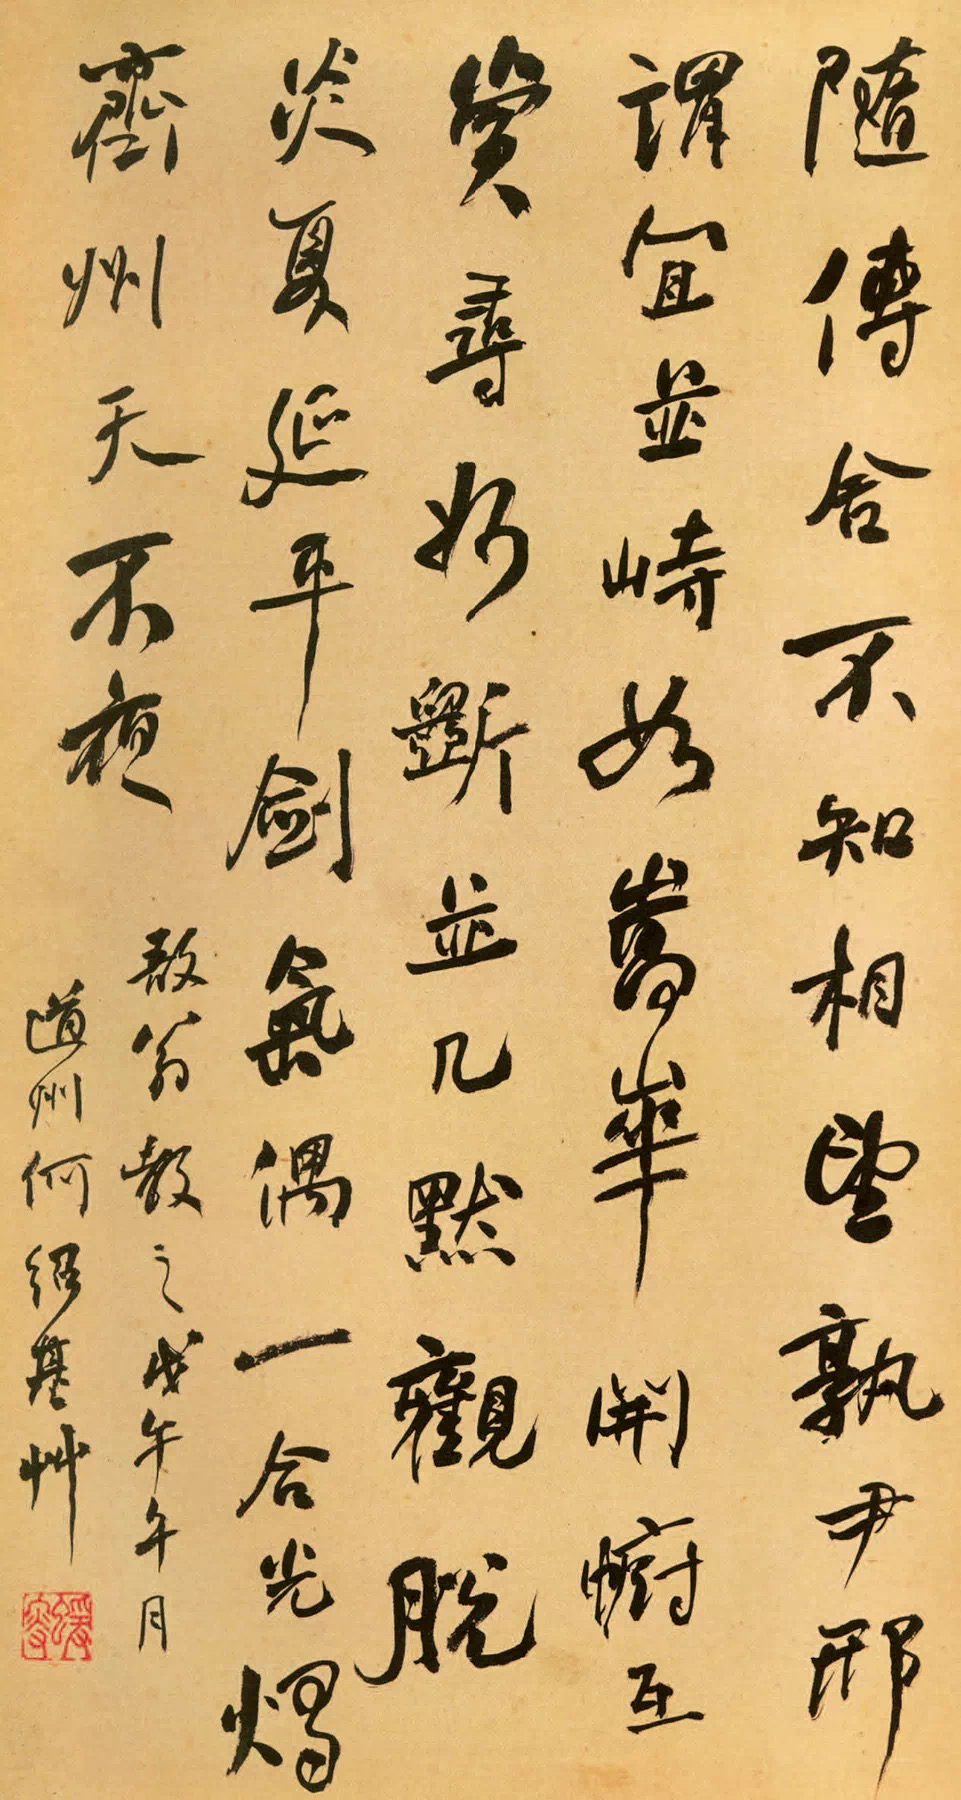 隨傳舍不知相望孰尹邢
謂宜並峙如嵩華開幮互
賞尋好斵並几默觀脫
炎夏延平劍氣偶一合光燭
齊州天不夜
翁教之戊午午月
道州何紹基艸